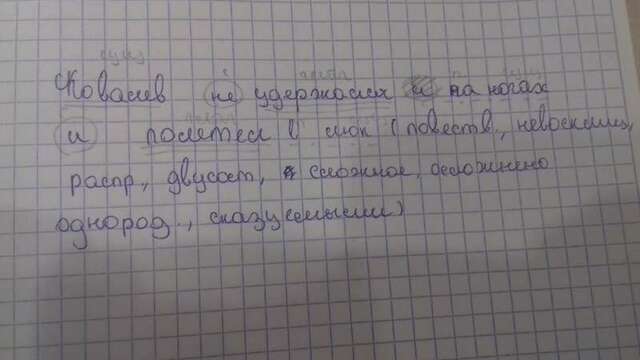 сущ
Ковалев не удержался на ногах
и полетел в люк (повеств., невосклиц,
распр., двусост, сложное, осложнено
однород., сказуемыми)